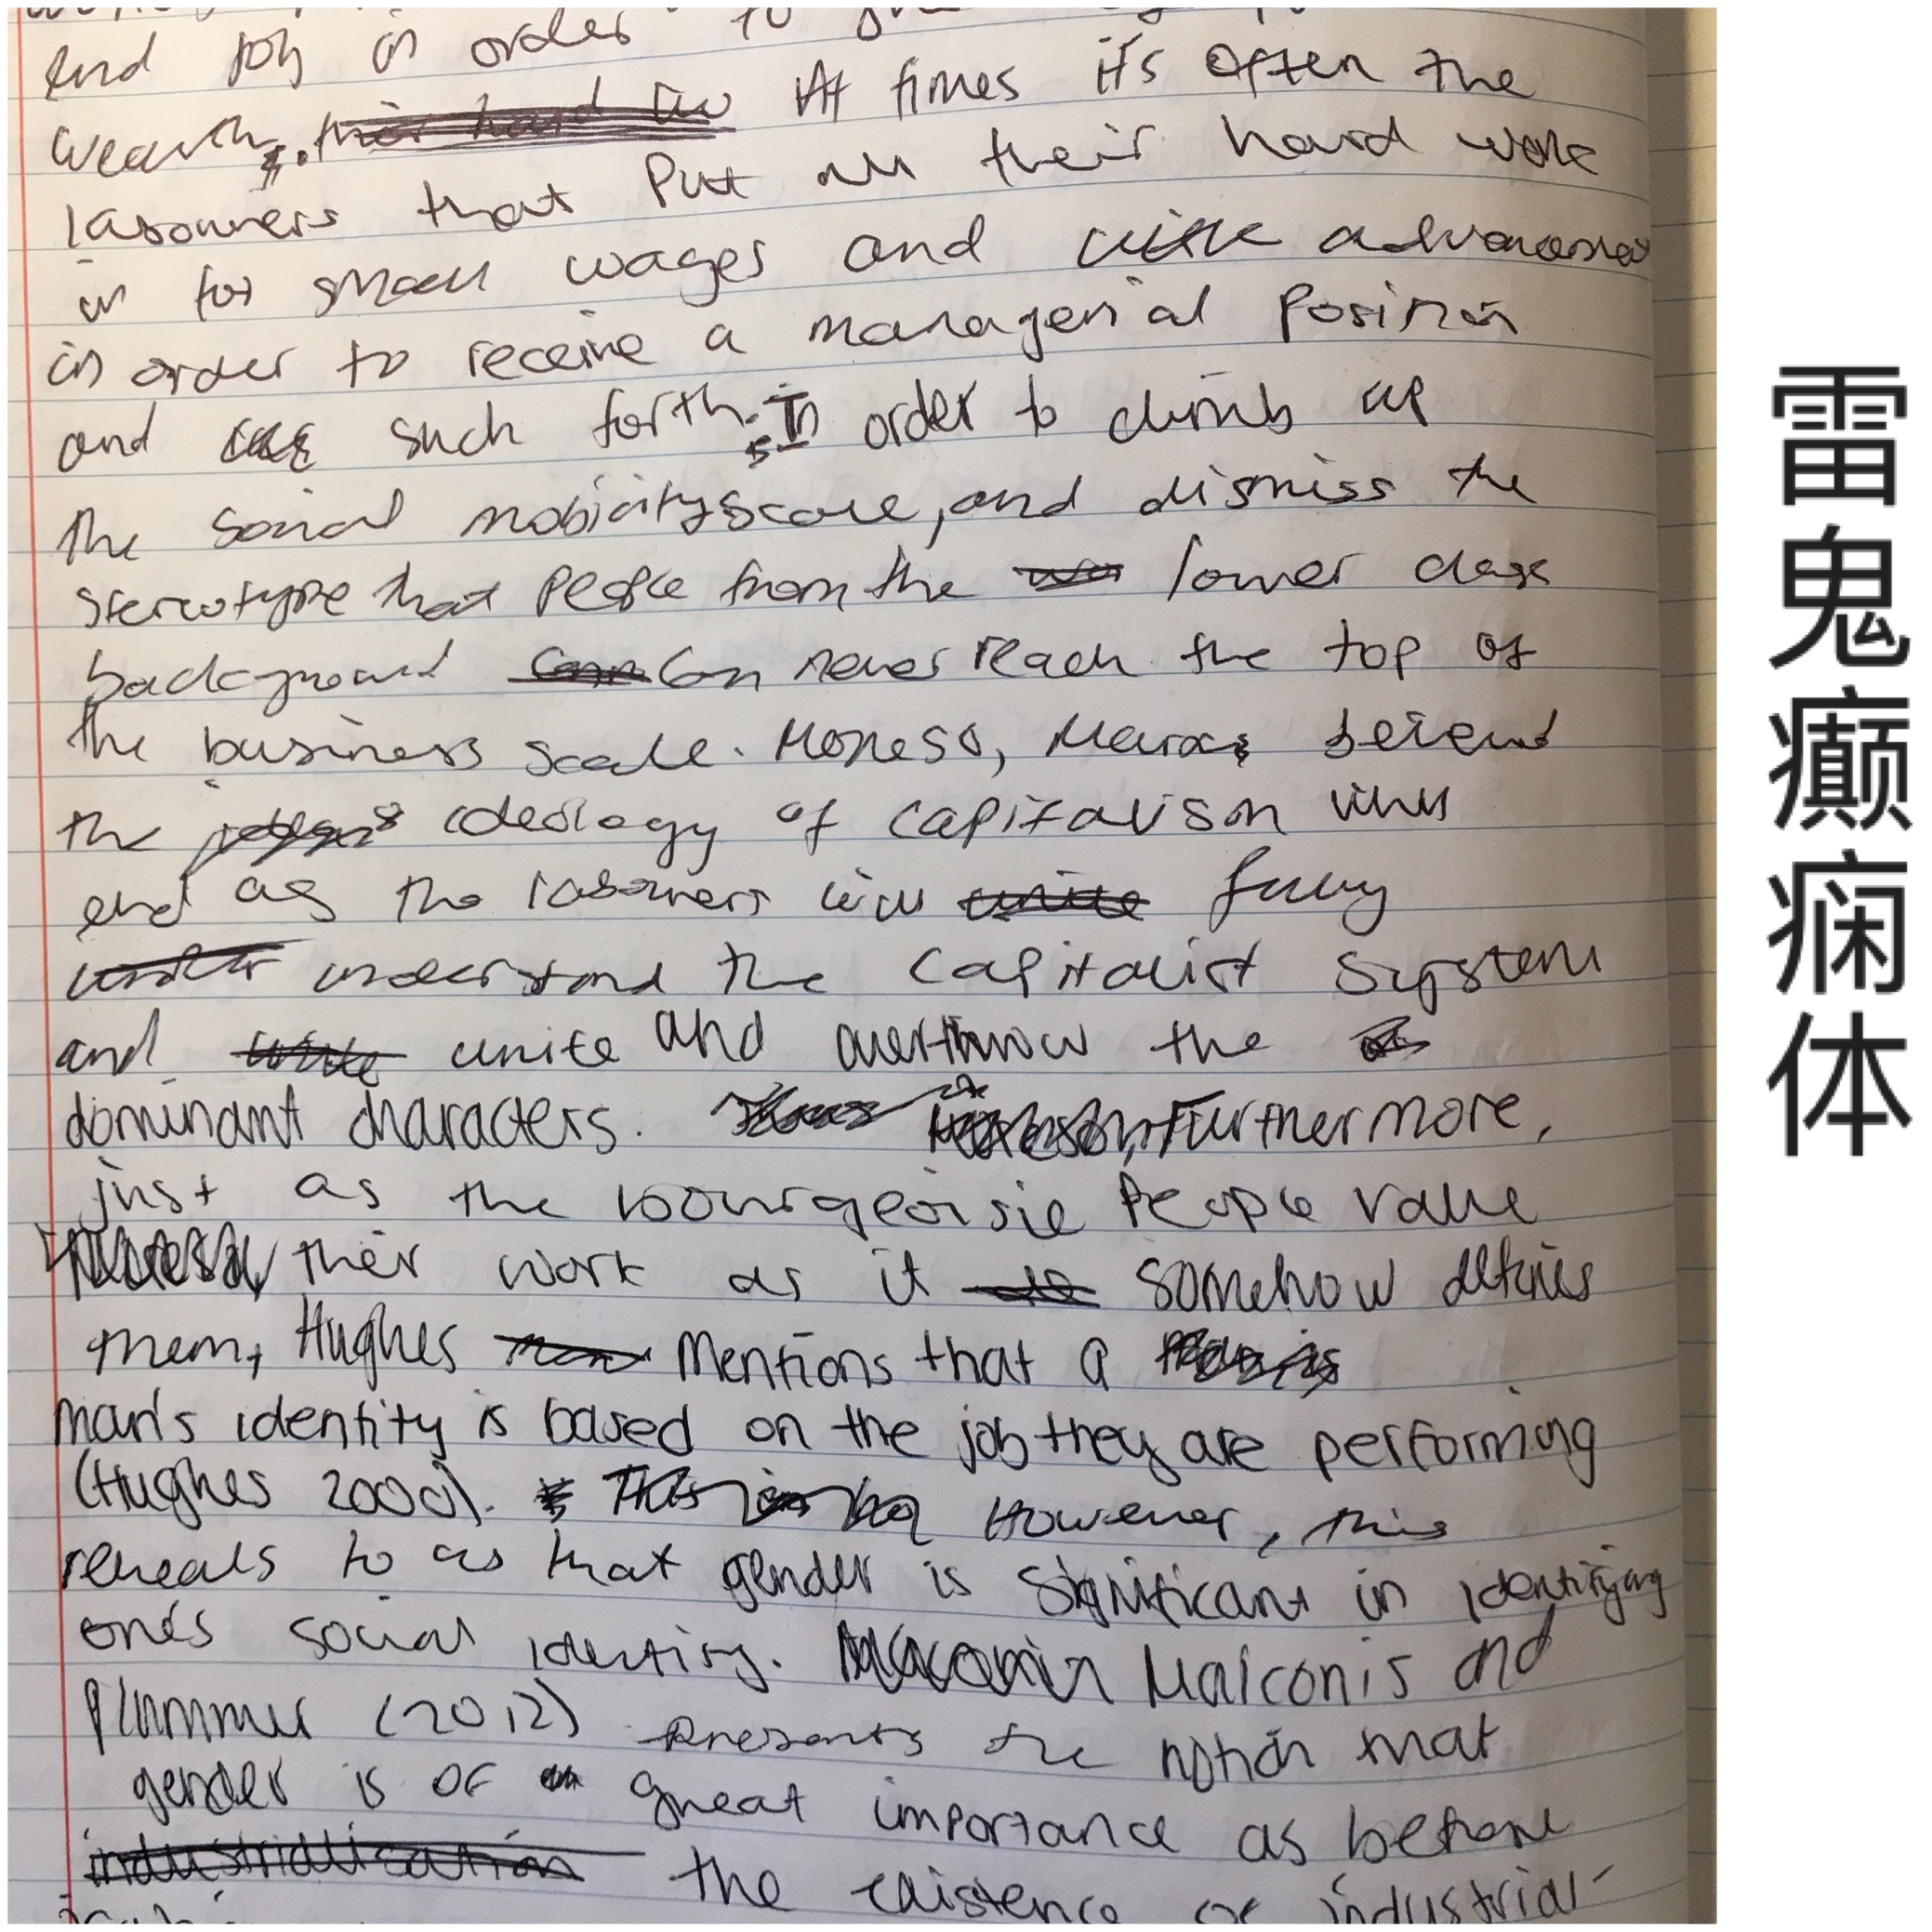 and joy in order to
wealth. their hard At times it's often the
labourers that put all their hard work
in for small wages and little advancement
in order to receive a managerial position
and such forth. In order to climb up
the social mobility scale, and dismiss the
stereotype that people from the lower class
background can never reach the top of
the business scale. Moreso, Marx believed
the ideology of capitalism will
end as the labourers will unite fully
under understand the capitalist system
and unite and overthrow the
dominant characters. Furthermore,
just as the bourgeoisie people value
their work as it somehow defines
them, Hughes mentions that a man is
man's identity is based on the job they are performing
(Hughes 2000). This is However, this
reveals to us that gender is significant in identifying
one's social identity. Malconis and
Plummer (2012) presents the notion that
gender is of great importance as before
industrialization the existence of industrial-
雷鬼癫痫体